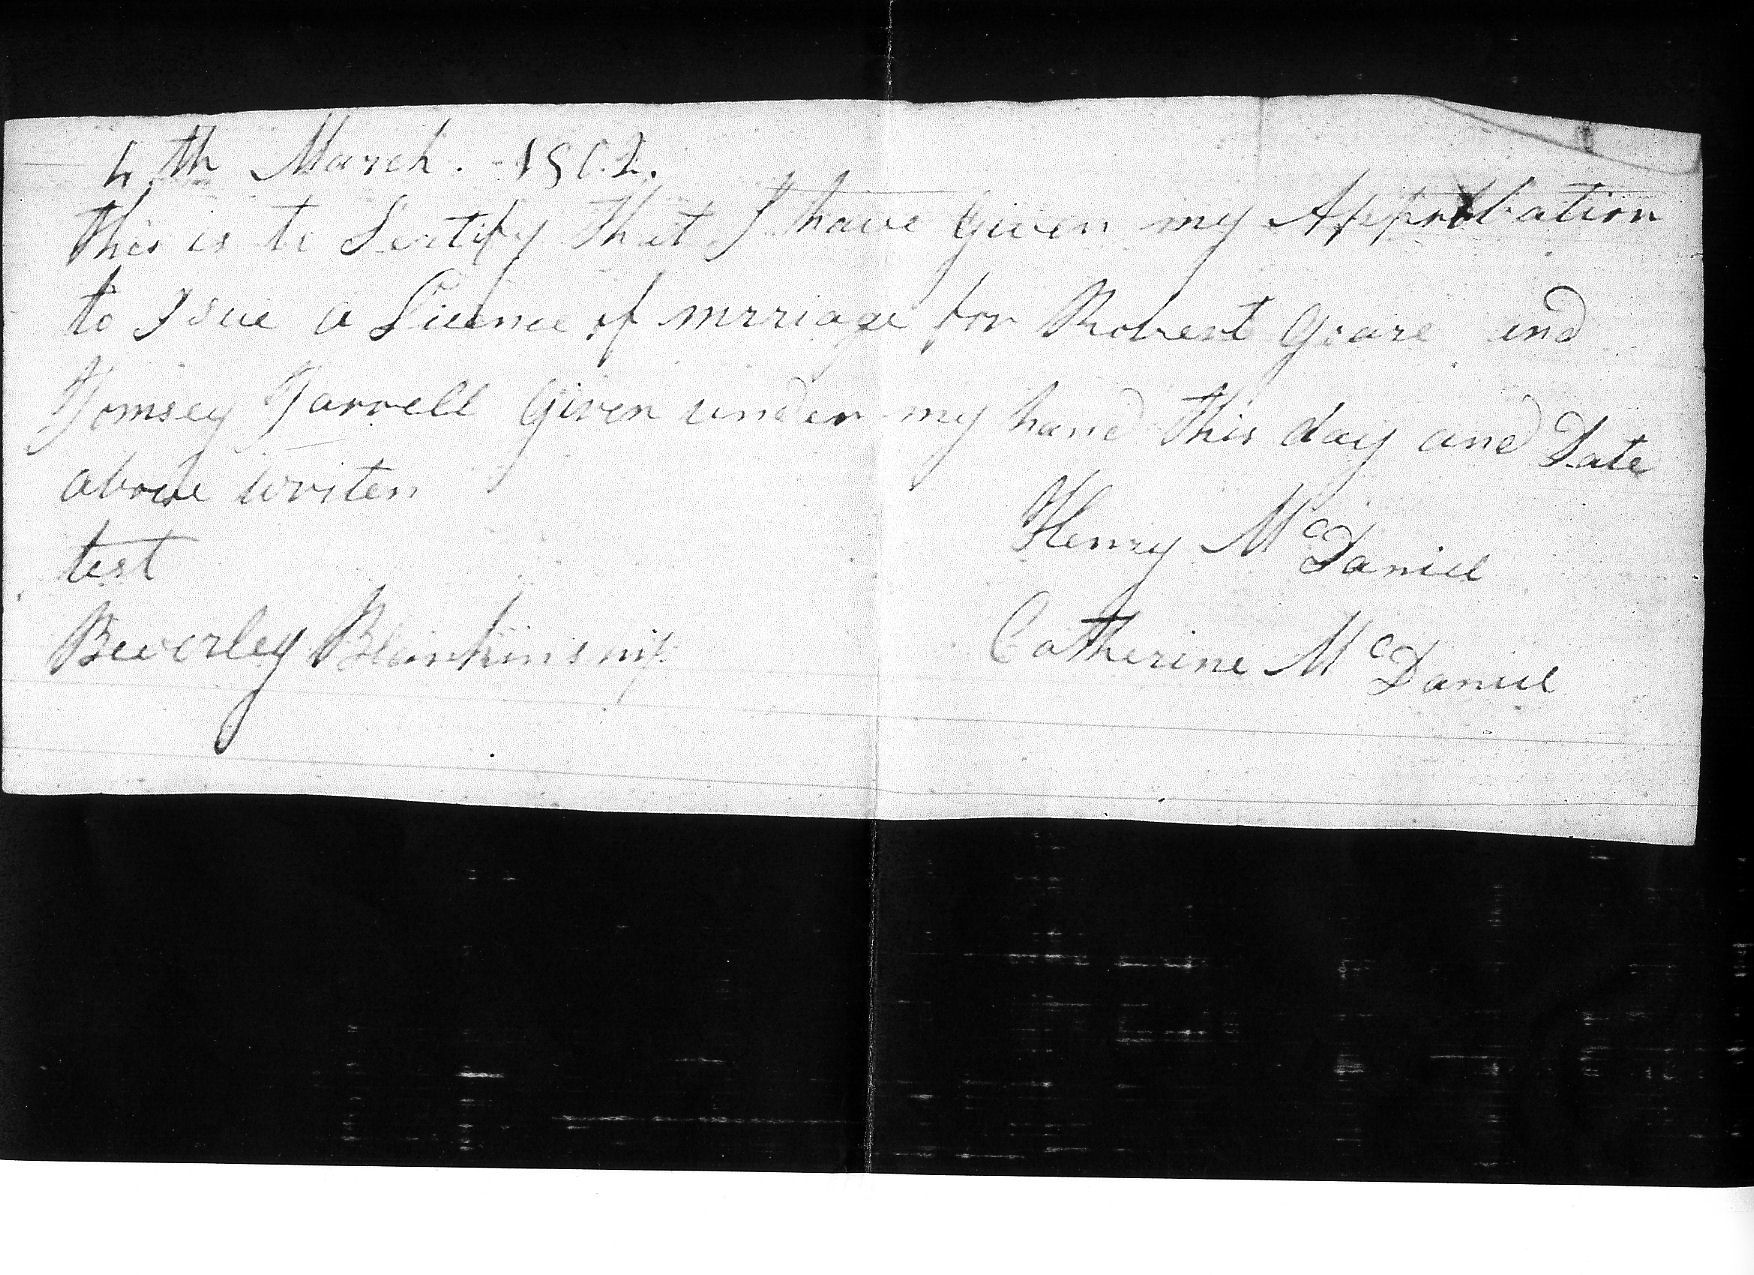 4th March. 1802.
this is to Sertify that I have Given my Approbation
to Isue a Licence of mrriage for Robert Grare and
Tomsey Farrell Given under my hand this day and Date
above writen
test
Henry McDaniel
Beverley Blankinship
Catherine McDaniel